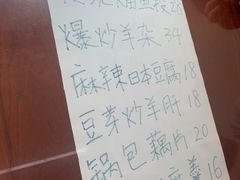 爆炒羊杂 34
麻辣日本豆腐 18
豆芽炒羊肝 18
锅包藕片 20
16